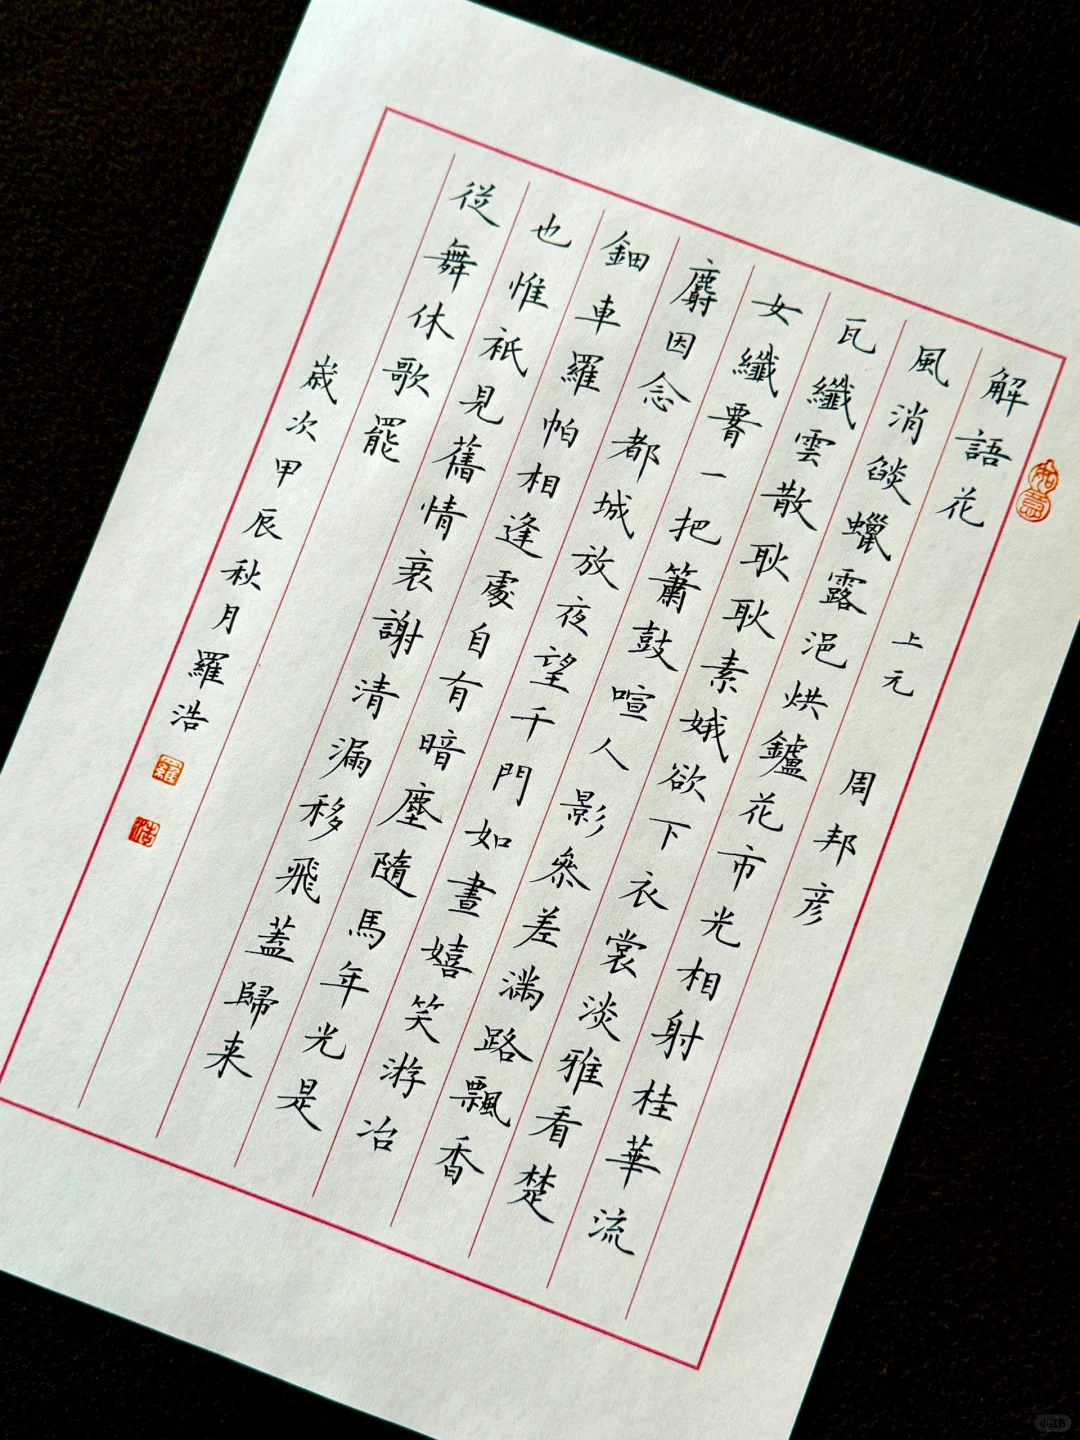 解語花 上元 周邦彦
風消燄蠟露浥烘鑪花市光相射桂華流
瓦纖雲散耿耿素娥欲下衣裳淡雅看楚
女纖一把簫鼓喧人影參差滿路飄香
麝因念都城放夜望千門如晝嬉笑游冶
鈿車羅帕相逢處自有暗塵隨馬年光是
也惟衹見舊情衰謝清漏移飛蓋歸来
從舞休歌罷
歲次甲辰秋月羅浩
如意
羅
浩
小红书